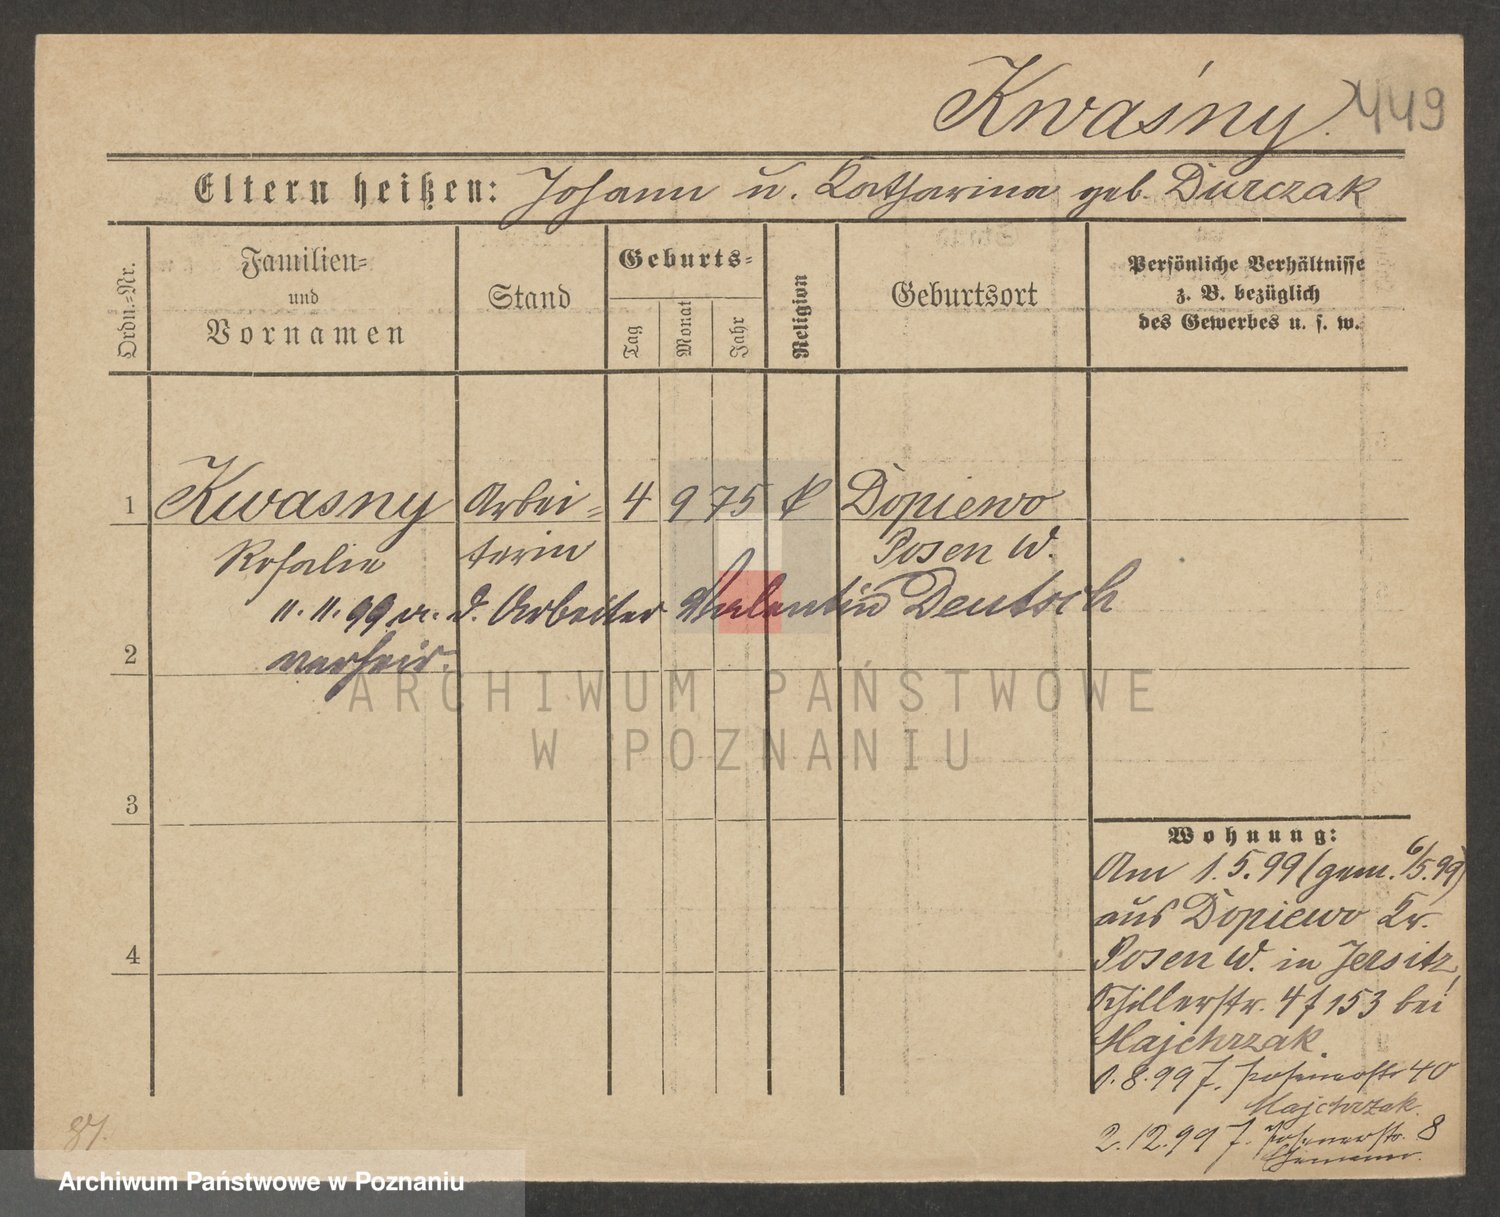 Kwaśny. 449
Eltern heißen: Johann u. Katharina geb. Durczak
Ordn.-Nr.
Familien-
und
Vornamen
Stand
Geburts-
Tag
Monat
Jahr
Religion
Geburtsort
Persönliche Verhältnisse
z. B. bezüglich
des Gewerbes u. s. w.
1 Kwasny Arbei- 4 9 75 k Dopiewo
Rosalie terin Posen W.
11.11.99 m. d. Arbeiter Valentin Deutsch
2 verheir.
3
4
Wohnung:
Am 1.5.99 (gem. 6/5.99)
aus Dopiewo Kr.
Posen W. in Jersitz,
Schillerstr. 4 f 153 bei
Majchrzak.
1.8.99 J. Posenerstr 40
Majchrzak.
2.12.99 J. Posenerstr. 8
87.
ARCHIWUM PAŃSTWOWE
W POZNANIU
Archiwum Państwowe w Poznaniu